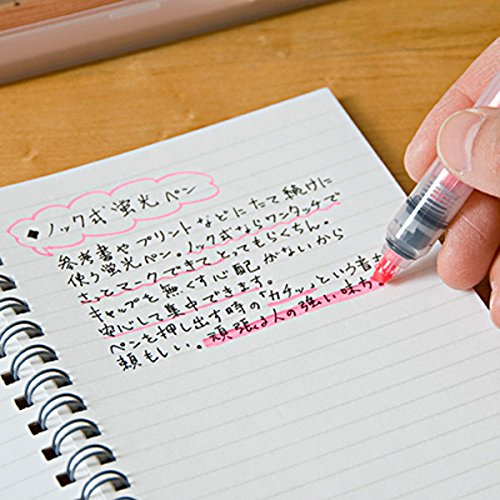 ◆ノック式蛍光ペン
参考書やプリントなどにたて続けに
使う蛍光ペン。ノック式ならワンタッチで
さっとマークできてとってもらくちん。
キャップも無くす心配がないから
安心して集中できます。
ペンを押し出す時の「カチッ」という音が
頼もしい。頑張る人の強い味方。